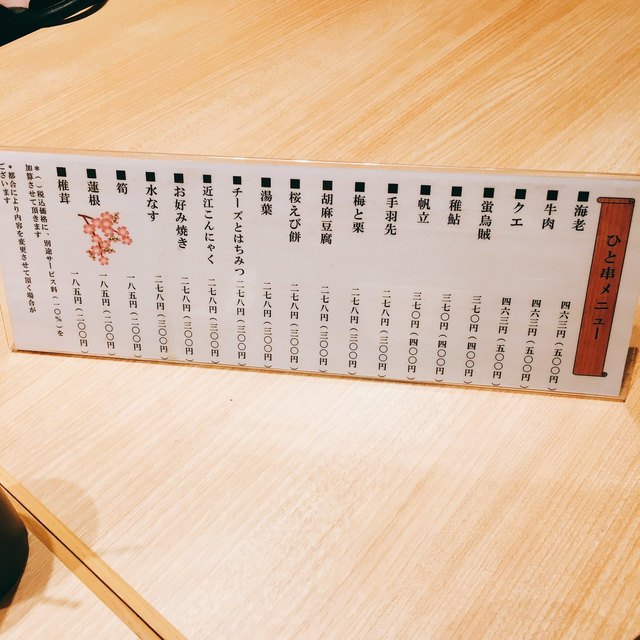 ひと串メニュー
■海老 四六三円(五〇〇円)
■牛肉 四六三円(五〇〇円)
■クエ 四六三円(五〇〇円)
■蛍烏賊 三七〇円(四〇〇円)
■稚鮎 三七〇円(四〇〇円)
■帆立 三七〇円(四〇〇円)
■手羽先 二七八円(三〇〇円)
■梅と栗 二七八円(三〇〇円)
■胡麻豆腐 二七八円(三〇〇円)
■桜えび餅 二七八円(三〇〇円)
■湯葉 二七八円(三〇〇円)
■チーズとはちみつ 二七八円(三〇〇円)
■近江こんにゃく 二七八円(三〇〇円)
■お好み焼き 二七八円(三〇〇円)
■水なす 二七八円(三〇〇円)
■筍 一八五円(二〇〇円)
■蓮根 一八五円(二〇〇円)
■椎茸 一八五円(二〇〇円)
*()税込価格に、別途サービス料(一〇%)を
加算させて頂きます
*都合により内容を変更させて頂く場合が
ございます